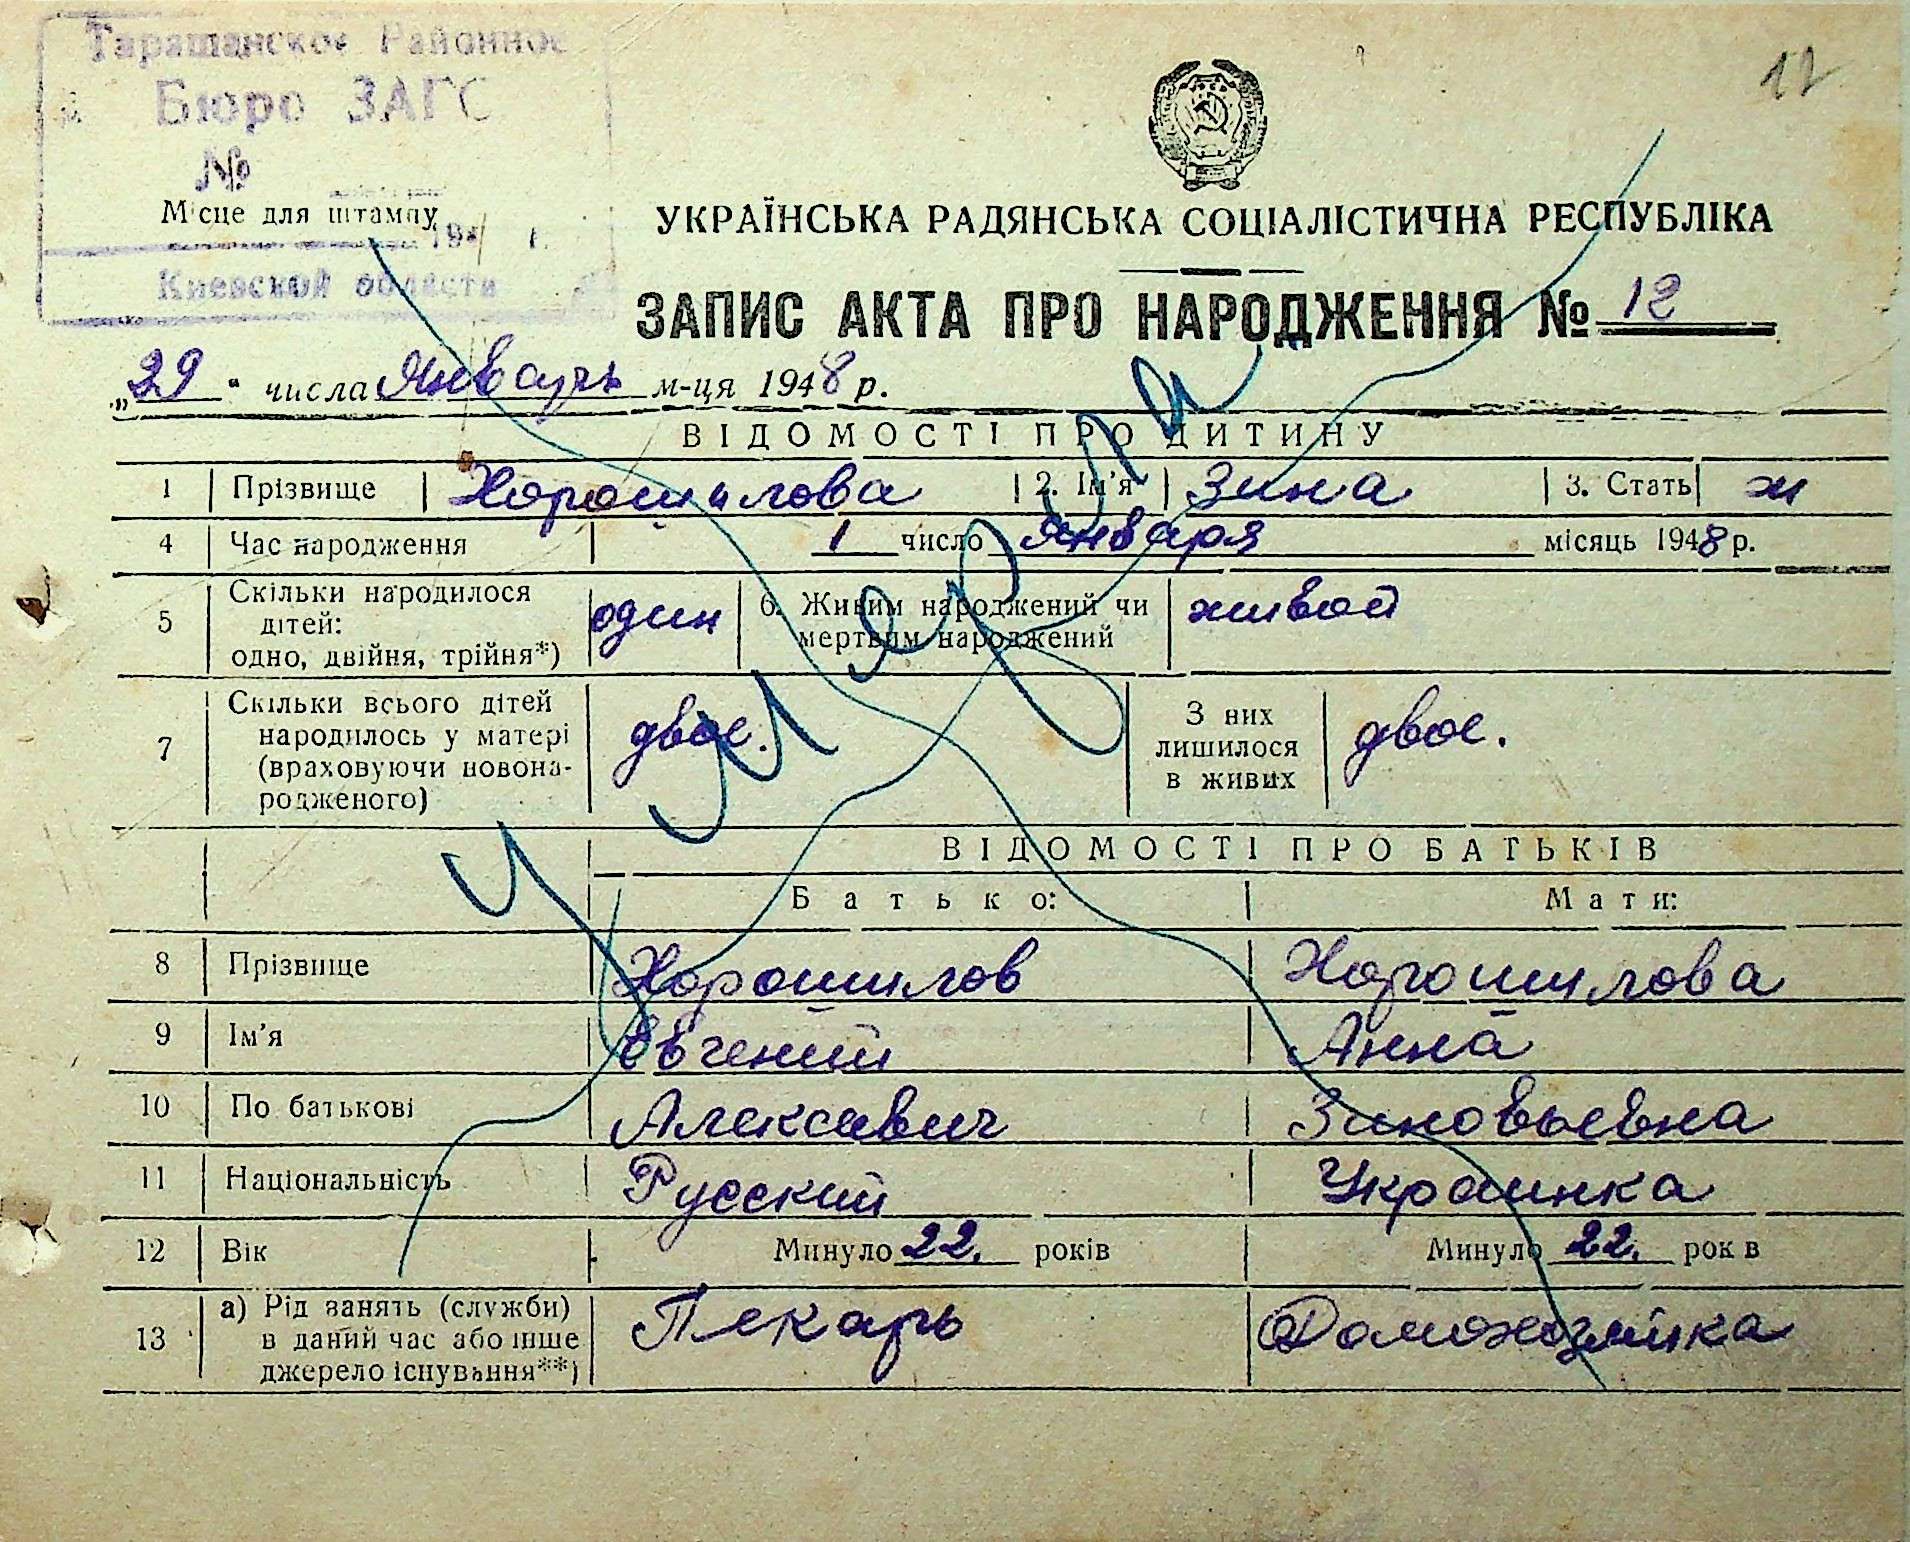 Таращанское Районное
Бюро ЗАГС
№
Місце для штампу
194 г.
Киевской области
12
УКРАЇНСЬКА РАДЯНСЬКА СОЦІАЛІСТИЧНА РЕСПУБЛІКА
ЗАПИС АКТА ПРО НАРОДЖЕННЯ № 12
„29“ числа Январь м-ця 1948 р.
ВІДОМОСТІ ПРО ДИТИНУ
1 Прізвище Хорошилова 2. Ім'я Зина 3. Стать ж
4 Час народження 1 число января місяць 1948 р.
5 Скільки народилося дітей: одно, двійня, трійня*) один 6. Живим народжений чи мертвим народжений живой
7 Скільки всього дітей народилось у матері (враховуючи новонародженого) двое. З них лишилося в живих двое.
Умерла
ВІДОМОСТІ ПРО БАТЬКІВ
Батько: Мати:
8 Прізвище Хорошилов Хорошилова
9 Ім'я Евгений Анна
10 По батькові Алексеевич Зиновьевна
11 Національність Русский Украинка
12 Вік Минуло 22. років Минуло 22. років
13 а) Рід занять (служби) в даний час або інше джерело існування**) Пекарь Домохозяйка